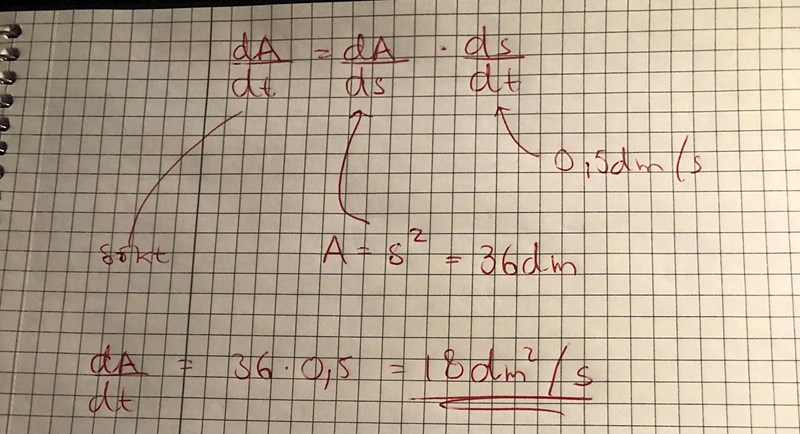 dA/dt = dA/ds · ds/dt
0,5dm/s
sökt
A = s² = 36dm
dA/dt = 36·0,5 = 18dm²/s